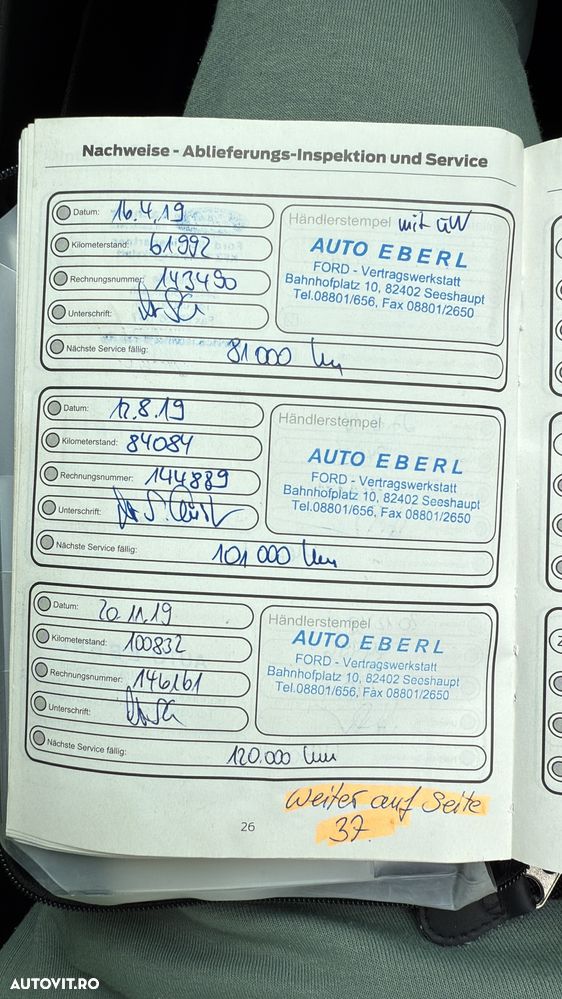 Nachweise - Ablieferungs-Inspektion und Service
Datum: 16.4.19
Kilometerstand: 61992
Rechnungsnummer: 143490
Unterschrift:
Nächste Service fällig: 81000 km
Händlerstempel mit üW
AUTO EBERL
FORD - Vertragswerkstatt
Bahnhofplatz 10, 82402 Seeshaupt
Tel.08801/656, Fax 08801/2650
Datum: 12.8.19
Kilometerstand: 84084
Rechnungsnummer: 144889
Unterschrift:
Nächste Service fällig: 101000 km
Händlerstempel
AUTO EBERL
FORD - Vertragswerkstatt
Bahnhofplatz 10, 82402 Seeshaupt
Tel.08801/656, Fax 08801/2650
Datum: 20.11.19
Kilometerstand: 100832
Rechnungsnummer: 146161
Unterschrift:
Nächste Service fällig: 120.000 km
Händlerstempel
AUTO EBERL
FORD - Vertragswerkstatt
Bahnhofplatz 10, 82402 Seeshaupt
Tel.08801/656, Fax 08801/2650
Weiter auf Seite
37.
26
AUTOVIT.RO